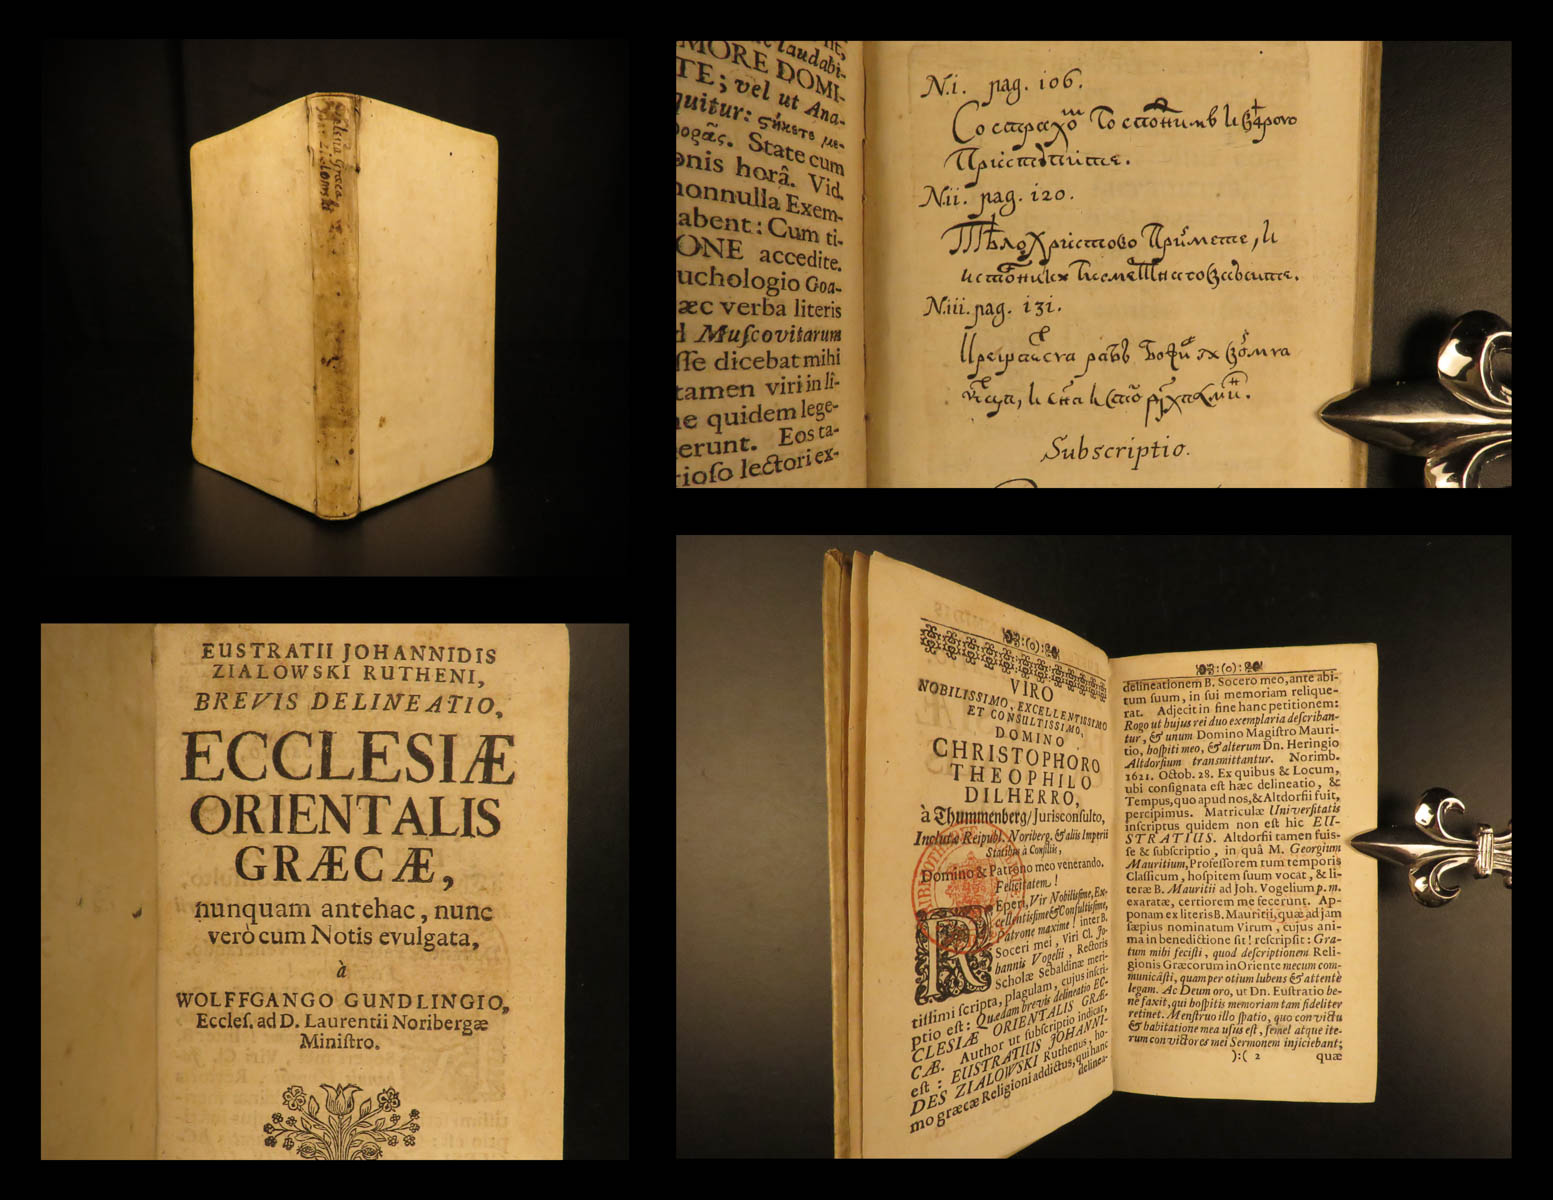 MORE DOMI-
TE; vel ut Ana-
quitur: ςήκετε με-
State cum
onis horâ. Vid.
nonnulla Exem-
abent: Cum ti-
ONE accedite.
uchologio Goa-
æc verba literis
d Muſcovitarum
ſſe dicebat mihi
tamen viri in li-
ne quidem lege-
erunt. Eos ta-
rioſo lectori ex-
N.i. pag. 106.
N.ii. pag. 120.
N.iii. pag. 131.
Subscriptio.
EUSTRATII JOHANNIDIS
ZIALOWSKI RUTHENI,
BREVIS DELINEATIO,
ECCLESIÆ
ORIENTALIS
GRÆCÆ,
nunquam antehac, nunc
verò cum Notis evulgata,
à
WOLFFGANGO GUNDLINGIO,
Eccleſ. ad D. Laurentii Noribergæ
Miniſtro.
VIRO
NOBILISSIMO, EXCELLENTISSIMO
ET CONSULTISSIMO,
DOMINO
CHRISTOPHORO
THEOPHILO
DILHERRO,
à Thummenberg/Jurisconſulto,
Inclutæ Reipubl. Noriberg. & aliis Imperii
Statibus à Conſiliis,
Domino & Patrono meo venerando.
Felicitatem!
REperi, Vir Nobiliſſime, Ex-
cellentiſſime & Conſultiſſime,
Patrone maxime! inter B.
Soceri mei, Viri Cl. Jo-
hannis Vogelii, Rectoris
Scholæ Sebaldinæ meri-
tiſſimi ſcripta, plagulam, cujus inſcri-
ptio eſt: Quædam brevis delineatio EC-
CLESIÆ ORIENTALIS GRÆ-
CÆ. Author ut ſubſcriptio indicat,
eſt: EUSTRATIUS JOHANNI-
DES ZIALOWSKI Ruthenus, ho-
mo græcæ Religioni addictus, qui hanc
delinea-
delineationem B. Socero meo, ante abi-
tum ſuum, in ſui memoriam relique-
rat. Adjecit in fine hanc petitionem:
Rogo ut hujus rei duo exemplaria deſcriban-
tur, & unum Domino Magiſtro Mauri-
tio, hoſpiti meo, & alterum Dn. Heringio
Altdorfium transmittantur. Norimb.
1621. Octob. 28. Ex quibus & Locum,
ubi conſignata eſt hæc delineatio, &
Tempus, quo apud nos, & Altdorfii fuit,
percipimus. Matriculæ Univerſitatis
inſcriptus quidem non eſt hic EU-
STRATIUS. Altdorfii tamen fuis-
ſe & ſubſcriptio, in quâ M. Georgium
Mauritium, Profeſſorem tum temporis
Claſſicum, hoſpitem ſuum vocat, & li-
teræ B. Mauritii ad Joh. Vogelium p. m.
exaratæ, certiorem me fecerunt. Ap-
ponam ex literis B. Mauritii, quæ ad jam
ſæpius nominatum Virum, cujus ani-
ma in benedictione ſit! reſcripſit: Gra-
tum mihi feciſti, quod deſcriptionem Reli-
gionis Græcorum in Oriente mecum com-
municâſti, quam per otium lubens & attentè
legam. Ac Deum oro, ut Dn. Euſtratio be-
nè faxit, qui hoſpitis memoriam tam fideliter
retinet. Menſtruo illo ſpatio, quo convictu
& habitatione mea uſus eſt, ſemel atque ite-
rum convictores mei Sermonem injiciebant;
):( 2 quæ